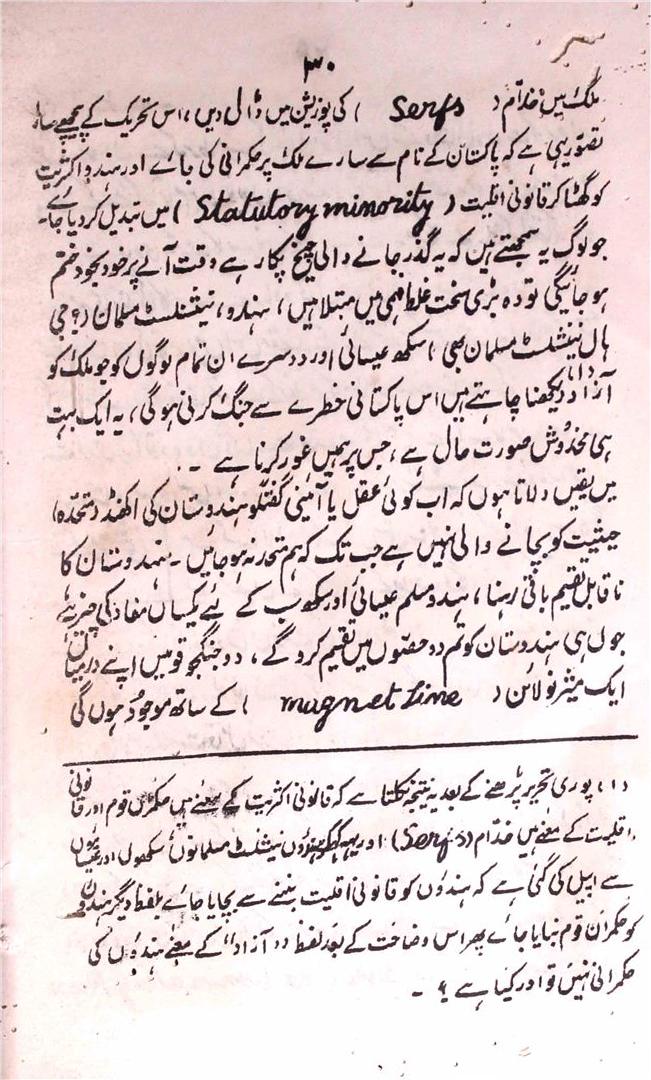 ۳۰
ملک میں خدّام ( Serfs ) کی پوزیشن میں ڈال دیں، اس تحریک کے پیچھے
تصوّر یہی ہے کہ پاکستان کے نام سے سارے ملک پر حکمرانی کی جائے اور ہندو اکثریت
کو گھٹا کر قانونی اقلیت ( Statutory minority ) میں تبدیل کر دیا جائے۔
جو لوگ یہ سمجھتے ہیں کہ یہ گذر جانے والی چیخ پکار ہے وقت آنے پر خود بخود ختم
ہو جائیگی تو وہ بڑی سخت غلط فہمی میں مبتلا ہیں، ہندو، نیشنلسٹ مسلمان (؟ جی
ہاں نیشنلسٹ مسلمان بھی، سکھ عیسائی اور دوسرے ان تمام لوگوں کو جو ملک کو
آزاد (۱) دیکھنا چاہتے ہیں اس پاکستانی خطرے سے جنگ کرنی ہوگی، یہ ایک بہت
ہی مخدوش صورت حال ہے، جس پر ہمیں غور کرنا ہے ۔
میں یقین دلاتا ہوں کہ اب کوئی عقل یا آئینی گفتگو ہندوستان کی اکھنڈ (متحدہ)
حیثیت کو بچانے والی نہیں ہے جب تک کہ ہم متحد نہ ہو جائیں۔ ہندوستان کا
ناقابل تقسیم باقی رہنا، ہندو مسلم عیسائی اور سکھوں کے لئے یکساں مفاد کی چیز ہے،
جوں ہی ہندوستان کو تم دو حصّوں میں تقسیم کرو گے، دو جنگجو قومیں اپنے درمیان
ایک میٹرنو لائن ( magnet Line ) کے ساتھ موجود ہوں گی
(۱) پوری تحریر پڑھنے کے بعد یہ نتیجہ نکلتا ہے کہ قانونی اکثریت کے معنے ہیں حکمراں قوم اور قانونی
اقلیت کے معنے ہیں خدّام (Serfs) اور یہ کہکر ہندوں نیشنلسٹ مسلمانوں سکھوں اور عیسائیوں
سے اپیل کی گئی ہے کہ ہندؤں کو قانونی اقلیت بننے سے بچایا جائے بلفظ دیگر ہندوؤں
کو حکمران قوم بنایا جائے پھر اس وضاحت کے بعد لفظ "آزاد" کے معنے ہندوؤں کی
حکمرانی نہیں تو اور کیا ہے ؟ ۔